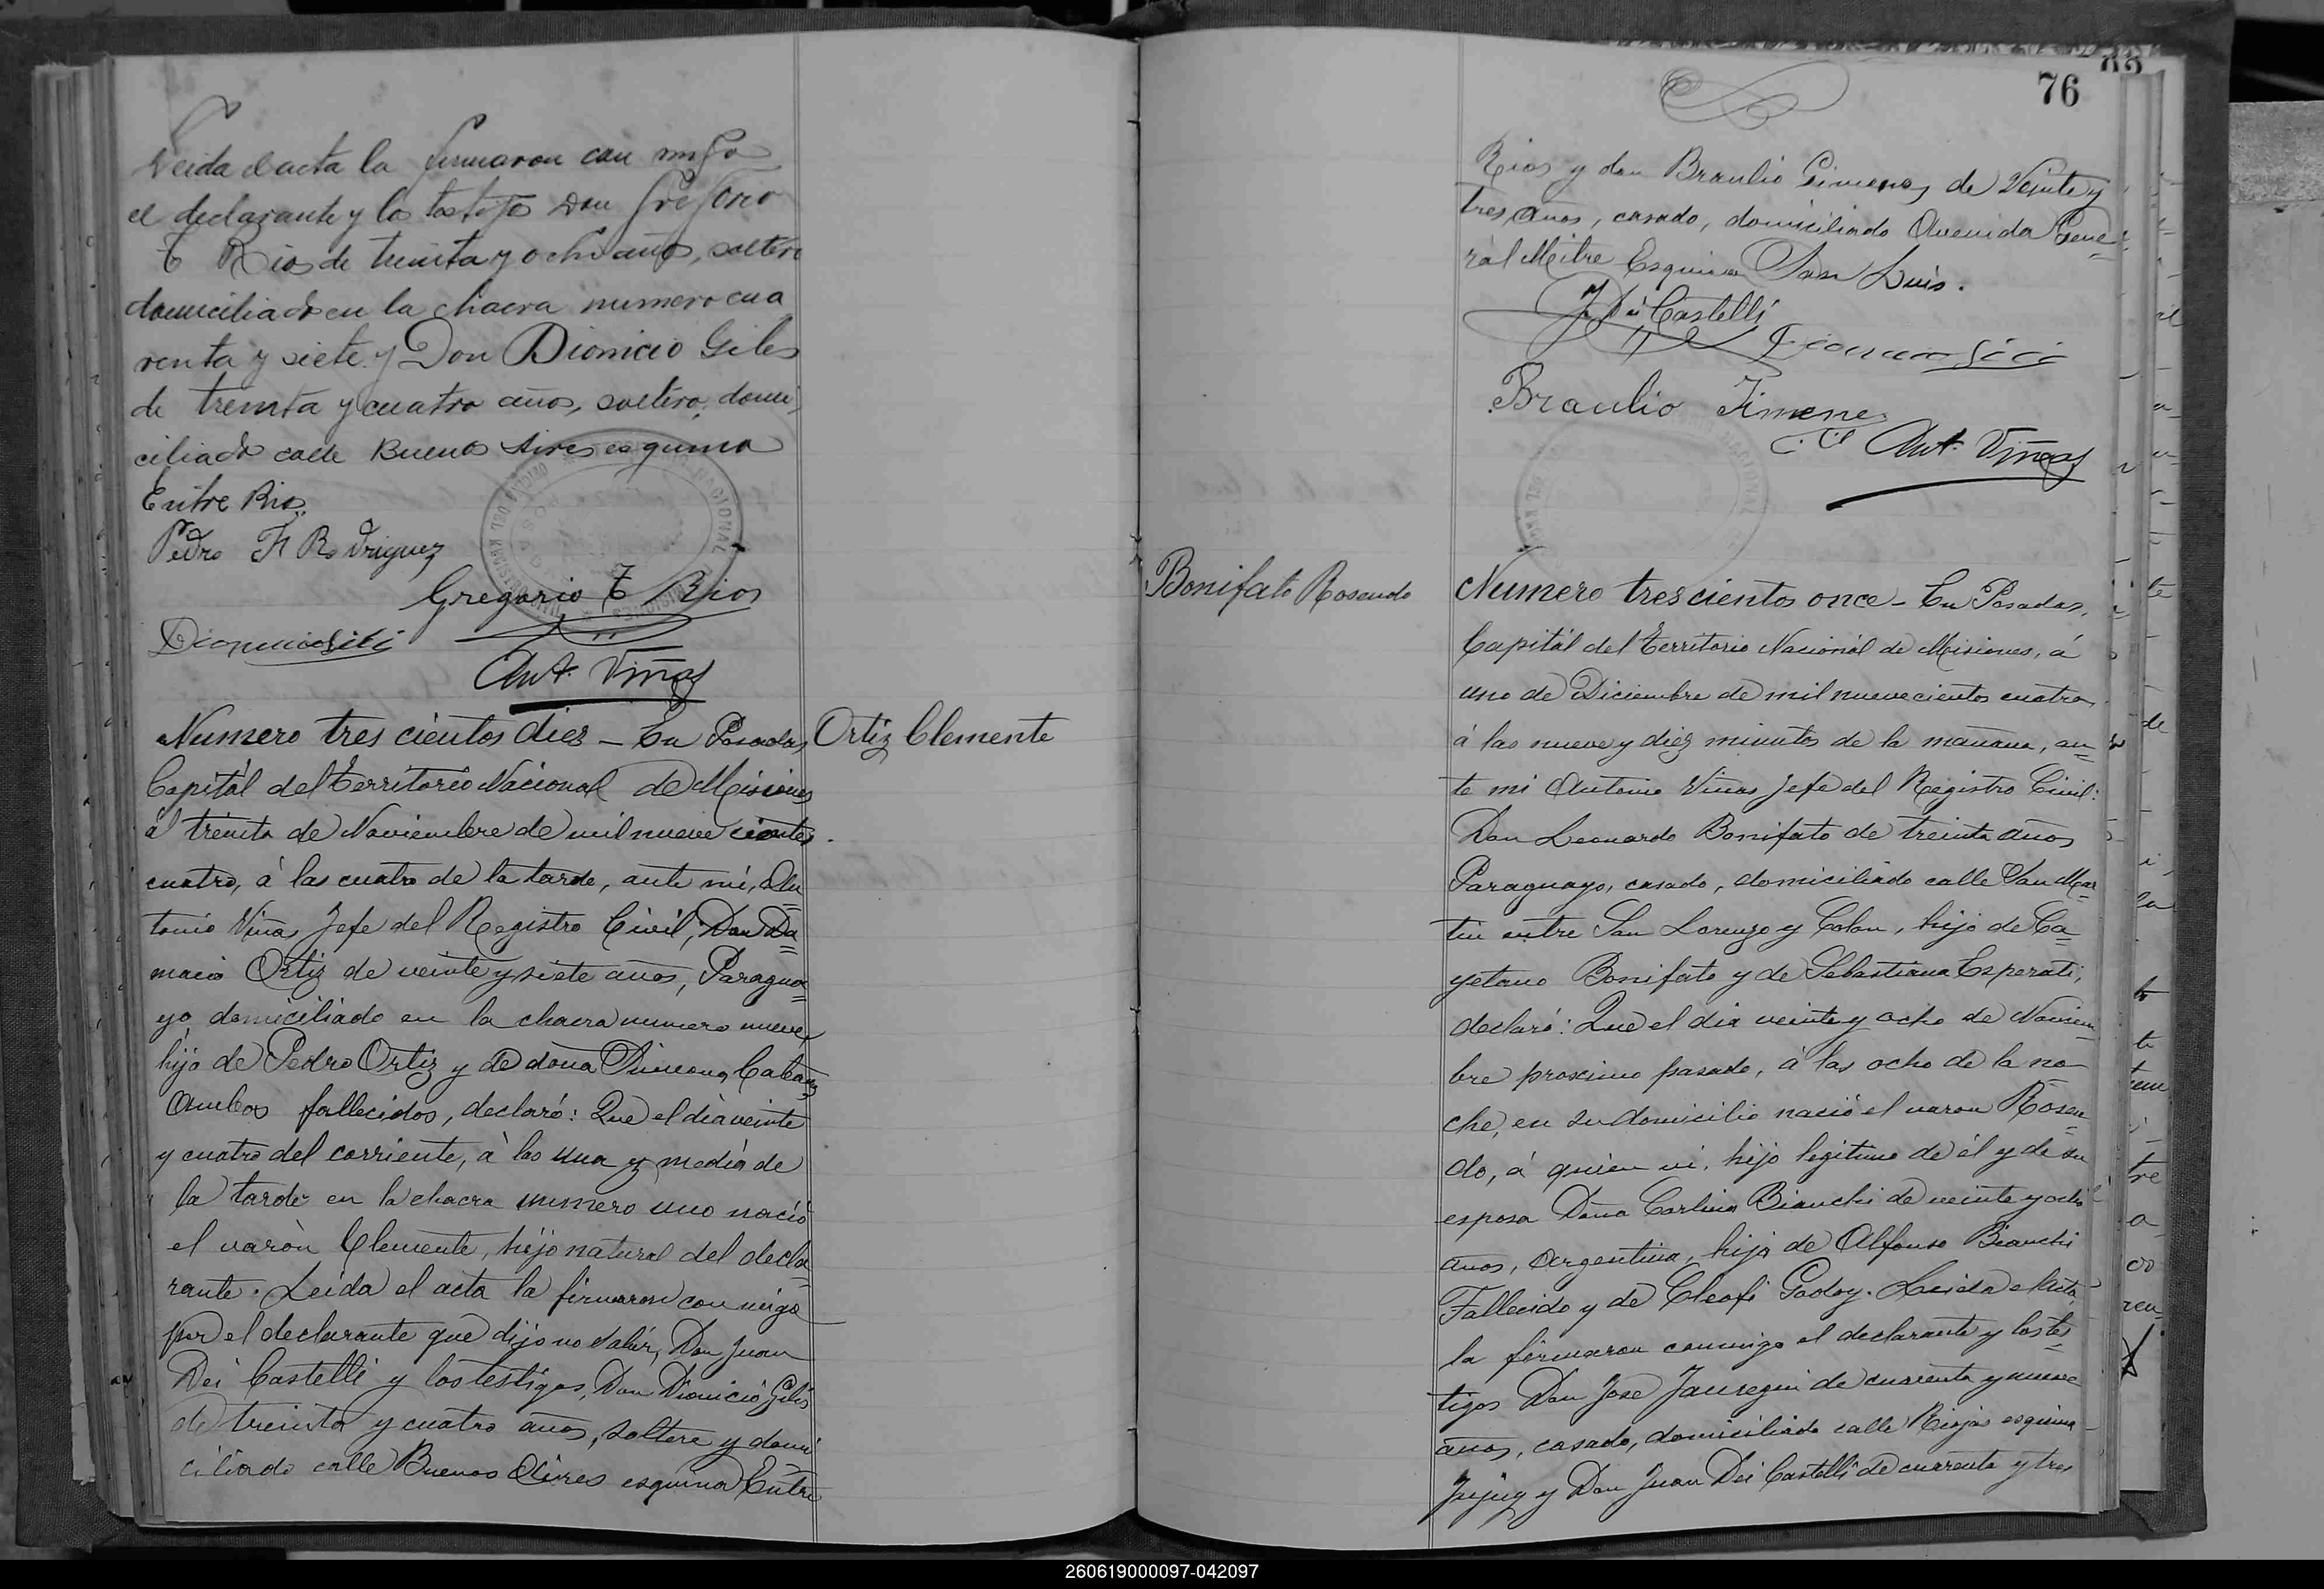 Leida el acta la firmaron con migo
el declarante y los testigos Don Gregorio
T Rios de treinta y ocho años, soltero
domiciliado en la chacra numero cua
renta y siete y Don Dionicio Giles
de treinta y cuatro años, soltero, domi,
ciliado calle Buenos Aires esquina
Entre Rios.
Pedro F Rodriguez
Gregorio T Rios
Ant. Viñas
Numero tres cientos diez - En Posadas,
Ortiz Clemente
Capitál del Territorio Nacional de Misiones
á treinta de Noviembre de mil nueve cientos
cuatro, á las cuatro de la tarde, ante mi, An
tonio Viñas Jefe del Registro Civil, Don Da
macio Ortiz de veinte y siete años, Paragua
yo domiciliado en la chacra numero nueve,
hijo de Pedro Ortiz y de doña Simona
Ambos fallecidos, declaró: Que el dia veinte
y cuatro del corriente, á las una y media de
la tarde en la chacra numero uno nació
el varòn Clemente, hijo natural del decla
rante. Leida el acta la firmaron con migo
por el declarante que dijo no saber, Don Juan
Dei Castelli y los testigos, Don Dionicio Giles
de treinta y cuatro años, soltero y domi
ciliado calle Buenos Aires esquina Entre
76
Rios y don Braulio Gimenez de Veinte y
tres años, casado, domiciliado Avenida Gene
ral Mitre Esquina San Luis.
J Dei Castelli
Braulio Jimenez
Ant. Viñas
Bonifato Rosendo
Numero trescientos once - En Posadas,
Capitál del Territorio Nacionál de Misiones, á
uno de Diciembre de mil nuevecientos cuatro
á las nueve y diez minutos de la mañana, an
te mi Antonio Viñas Jefe del Registro Civil:
Don Leonardo Bonifato de treinta años
Paraguayo, casado, domiciliado calle San Mar
tin entre San Lorenzo y Colon, hijo de Ca
yetano Bonifato y de Sebastiana Esperati,
declaró: Que el dia veinte y ocho de Noviem
bre proximo pasado, á las ocho de la no
che, en su domicilio nació el varon Rosen
do, á quien vi, hijo legitimo de él y de su
esposa Doña Carlina Bianchi de veinte y ocho
años, Argentina, hija de Alfonso Bianchi
Fallecido y de Cleofi Godoy. Leida el acta
la firmaron conmigo el declarante y los tes
tigos Don Jose Jauregui de cuarenta y nueve
años, casado, domiciliado calle Rioja esquina
Jujuy y Don Juan Dei Castelli de cuarenta y tres
260619000097-042097